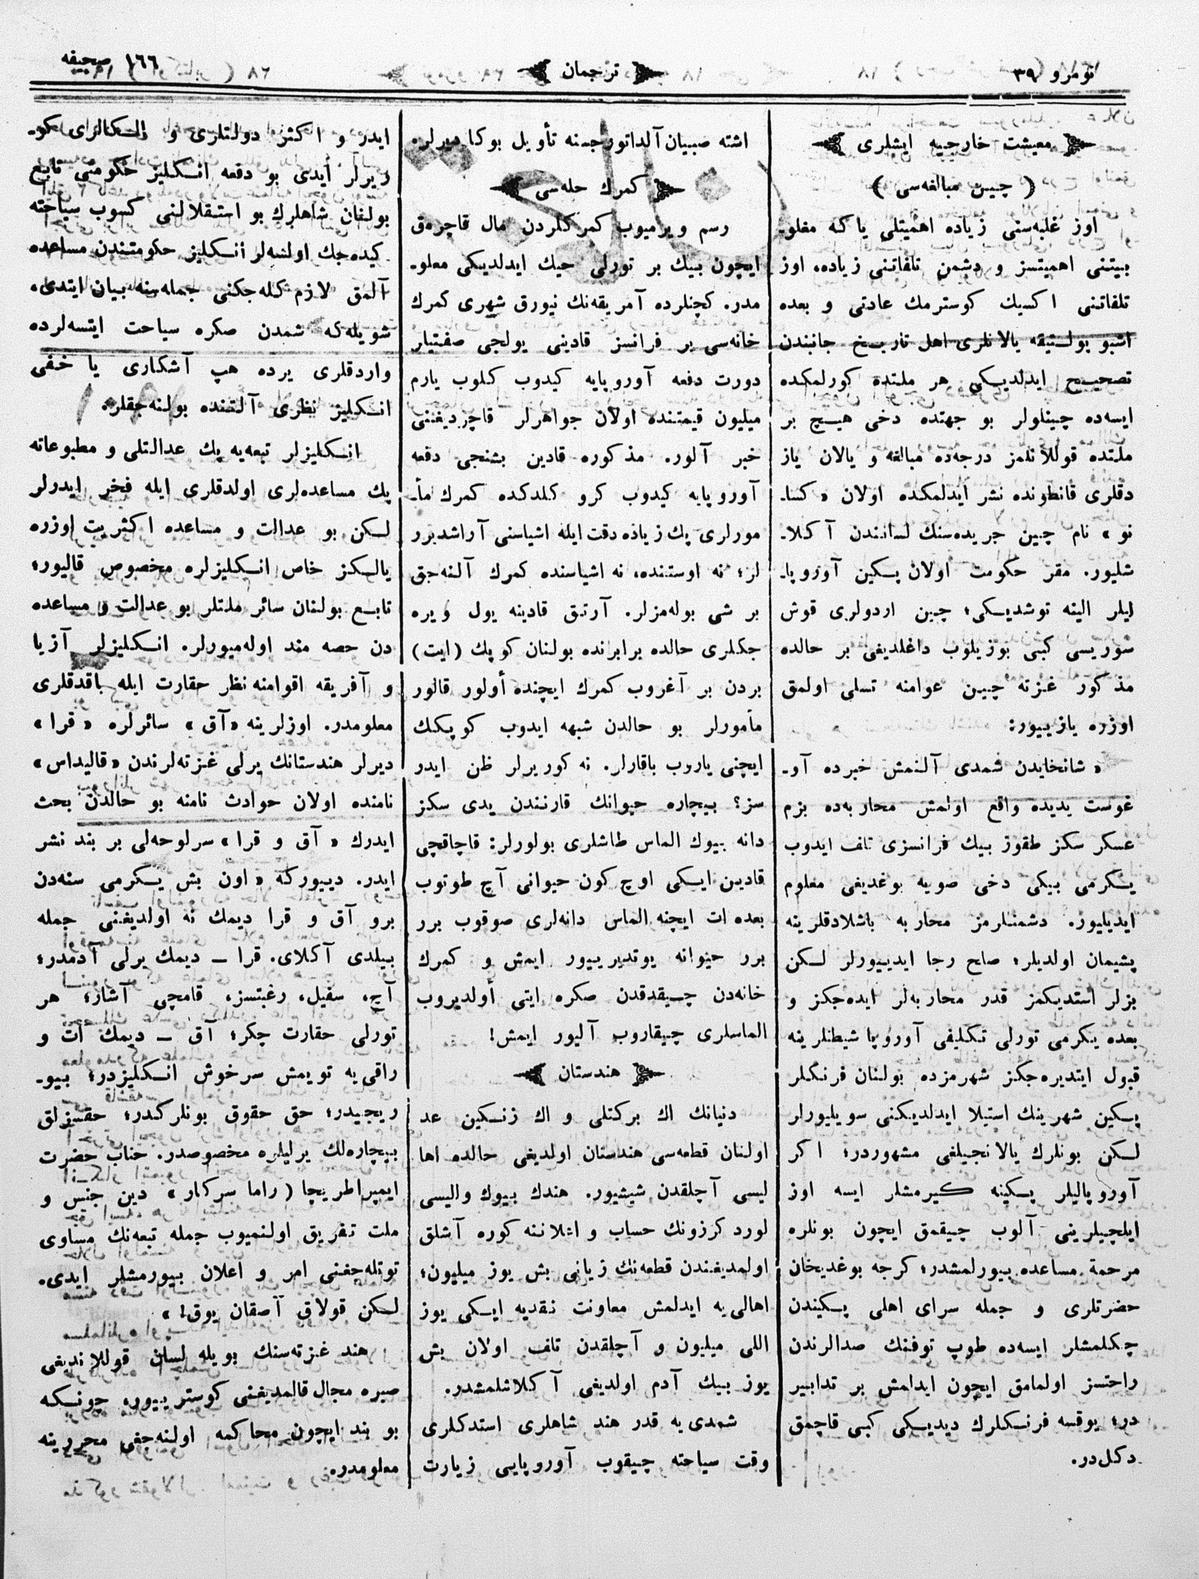 نومرو ٣٩
ترجمان
صحيفه ١٦٦
معيشت خارجيه ايشلرى
( چين مبالغه‌سى )
اوز غلبه‌سنى زياده اهميتلى ياكه مغلو-
بيتنى اهميتسز و دشمن تلفاتنى زياده، اوز
تلفاتنى اكسيك كوسترمك عادتى و بعده
اشبو پولتيقه يالانلرى اهل تاريخ جانبندن
تصحيح ايدلديكى هر ملتده كورلمكده
ايسه‌ده چينلولر بو جهتده دخى هيچ بر
ملتده قوللانلمز درجه‌ده مبالغه و يالان ياز
دقلرى قانطونده نشر ايدلمكده اولان « كسا-
نو » نام چين جريده‌سنك لسانندن آكلا-
شليور. مقر حكومت اولان پكين آوروپا-
ليلر الينه توشديكى؛ چين اردولرى قوش
سوريسى كبى بوزيلوب داغلديغى بر حالده
مذكور غزته چين عوامنه تسلى اولمق
اوزره يازييور:
« شانخايدن شمدى آلنمش خبرده آو-
غوست يديده واقع اولمش محاربه‌ده بزم
عسكر سكز طقوز بيك فرانسزى تلف ايدوب
يكرمى بيكى دخى صويه بوغديغى معلوم
ايديليور. دشمنلرمز محاربه باشلادقلرينه
پشيمان اولديلر؛ صلح رجا ايدييورلر لكن
بزلر استديكمز قدر محاربه‌لر ايده‌جكز و
بعده يكرمى تورلى تكليفى آوروپا شيطنلرينه
قبول ايتديره‌جكز شهرمزده بولنان فرنكلر
پكين شهرينك استيلا ايدلديكنى سويليورلر
لكن بونلرك يالانجيلغى مشهوردر؛ اكر
آوروپاليلر پكينه كيرمشلر ايسه اوز
ايلچيلرينى آلوب چيقمق ايچون بونلره
مرحمة مساعده بيورلمشدر؛ كرچه بوغديخان
حضرتلرى و جمله سراى اهلى پكيندن
چكلمشلر ايسه‌ده طوپ توفنك صدالرندن
راحتسز اولمامق ايچون ايدلمش بر تدابير
در؛ يوقسه فرنكلرك ديديكى كبى قاچمق
دكل در.
اشته صبيان آلداتورجسنه تأويل بوكا ديرلر.
كمرك حله‌سى
رسم ويرميوب كمركلردن مال قاچرمق
ايچون بيك بر تورلى حيك ايدلديكى معلو-
مدر. كچنلرده آمريقه‌نك نيورق شهرى كمرك
خانه‌سى بر فرانسز قادينى يولجى صفتيلر
دورت دفعه آوروپايه كيدوب كلوب يارم
ميليون قيمتنده اولان جواهرلر قاچرديغنى
خبر آلور. مذكوره قادين بشنجى دفعه
آوروپايه كيدوب كرو كلدكده كمرك مأ-
مورلرى پك زياده دقت ايله اشياسنى آراشدرر
لر؛ نه اوستنده، نه اشياسنده كمرك آلنه‌جق
بر شى بوله‌مزلر. آرتق قادينه يول ويره
جكلرى حالده برابرنده بولنان كوپك (ايت)
بردن بر آغروب كمرك ايچنده أولور قالور
مأمورلر بو حالدن شبهه ايدوب كوپكك
ايچنى ياروب باقارلر. نه كوريرلر ظن ايدو
سز؟ بيچاره حيوانك قارنندن يدى سكز
دانه بيوك الماس طاشلرى بولورلر: قاچاقچى
قادين ايكى اوچ كون حيوانى آچ طوتوب
بعده ات ايچنه الماس دانه‌لرى صوقوب برر
برر حيوانه يوتديرييور ايمش و كمرك
خانه‌دن چيقدقدن صكره ايتى أولديروب
الماسلرى چيقاروب آليور ايمش!
هندستان
دنيانك اك بركتلى و اك زنكين عد
اولنان قطعه‌سى هندستان اولديغى حالده اها
ليسى آچلقدن شيشيور. هندك بيوك واليسى
لورد كرزونك حساب و اعلاننه كوره آشلق
اولمديغندن قطعه‌نك زيانى بش يوز ميليون؛
اهالى‌يه ايدلمش معاونت نقديه ايكى يوز
اللى ميليون و آچلقدن تلف اولان بش
يوز بيك آدم اولديغى آكلاشلمشدر.
شمدى‌يه قدر هند شاهلرى استدكلرى
وقت سياحته چيقوب آوروپايى زيارت
ايدر و اكثر دولتلرى و ئلكالرى كو-
ريرلر أيدى بو دفعه انكليز حكومتى تابع
بولنان شاهلرك بو استقلالنى كسوب سياحته
كيده‌جك اولنسه‌لر انكليز حكومتندن مساعده
آلمق لازم كله‌جكنى جمله‌سنه بيان ايتدى.
شويله‌كه شمدن صكره سياحت ايتسه‌لرده
واردقلرى يرده هپ آشكارى يا خفى
انكليز نظرى آلتنده بولنه‌جقلر.
انكليزلر تبعه‌يه پك عدالتلى و مطبوعاته
پك مساعده‌لرى اولدقلرى ايله فخر ايدرلر
لكن بو عدالت و مساعده اكثريت اوزره
يالكز خاص انكليزلره مخصوص قاليور؛
تابع بولنان سائر ملتلر بو عدالت و مساعده
دن حصه مند اوله‌ميورلر. انكليزلر آزيا
و آفريقه اقوامنه نظر حقارت ايله باقدقلرى
معلومدر. اوزلرينه «آق» سائرلره «قرا»
ديرلر هندستانك يرلى غزته‌لرندن «قاليداس»
نامنده اولان حوادث نامنه بو حالدن بحث
ايدرك « آق و قرا» سرلوحه‌لى بر بند نشر
ايدر. دييوركه « اون بش يكرمى سنه‌دن
برو آق و قرا ديمك نه اولديغنى جمله
بيلدى آكلاى. قرا — ديمك يرلى آدمدر؛
آچ، سفيل، رغبتسز، قامچى آشار؛ هر
تورلى حقارت چكر؛ آق — ديمك أت و
راقى‌يه تويمش سرخوش انكليزدر؛ بيو-
ريجيدر؛ حق حقوق بونلركدر؛ حقسزلق
بيچاره‌لك يرليلره مخصوصدر. جناب حضرت
ايمپراطريچا (راما سركار» دين جنس و
ملت تفريق اولنميوب جمله تبعه‌نك مساوى
توتله‌جغنى امر و اعلان بيورمشلر ايدى.
لكن قولاق آصقان يوق! »
هند غزته‌سنك بويله لسان قوللانديغى
صبره مجال قالمديغنى كوسترييور، چونكه
بو بند ايچون محاكمه اولنه‌جغى محررينه
معلومدر.